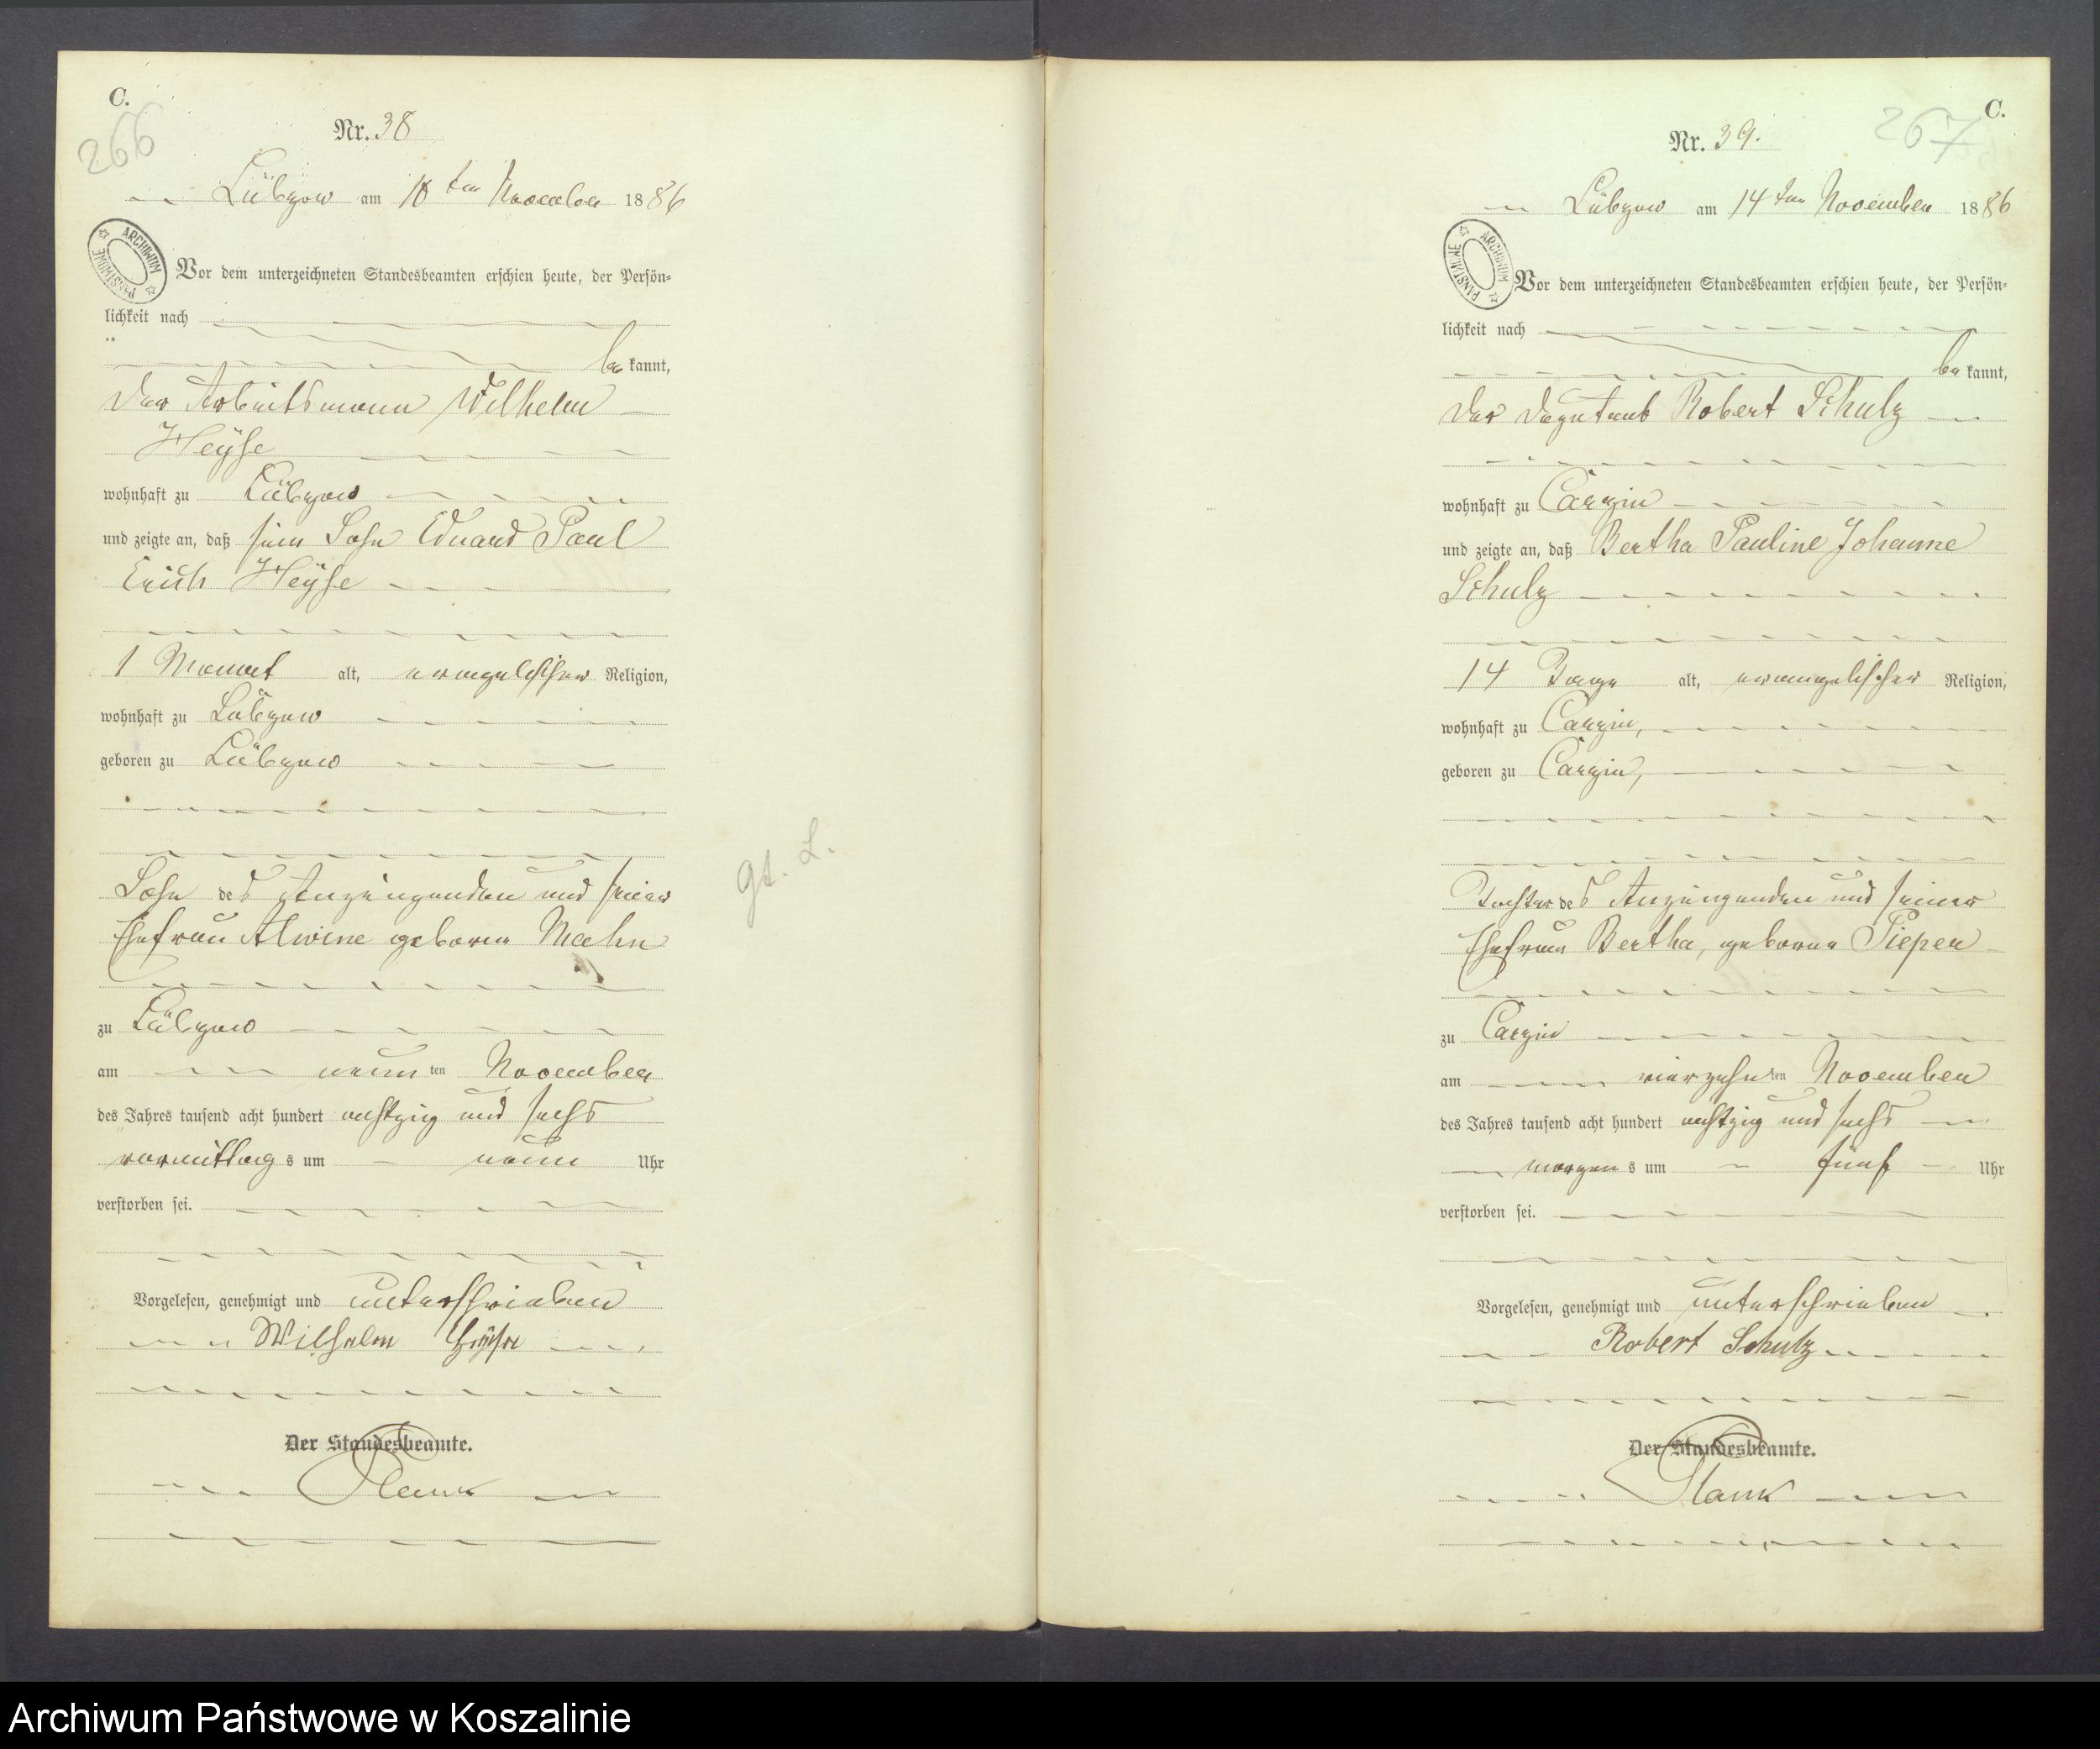 C.
266
Nr. 38
Lübzow am 10 ten November 1886
ARCHIWUM PAŃSTWOWE
Vor dem unterzeichneten Standesbeamten erschien heute, der Persön-
lichkeit nach
be kannt,
der Arbeitsmann Wilhelm
Heÿse
wohnhaft zu Lübzow
und zeigte an, daß sein Sohn Eduard Paul
Erich Heÿse
1 Monat alt, evangelischer Religion,
wohnhaft zu Lübzow
geboren zu Lübzow
Sohn des Anzeigenden und seiner
Ehefrau Alwine geborene Mahn
zu Lübzow
am neun ten November
des Jahres tausend acht hundert achtzig und sechs
vormittag s um neun Uhr
verstorben sei.
Vorgelesen, genehmigt und unterschrieben
Wilhelm Heÿse
Der Standesbeamte.
gt. L.
C.
267
Nr. 39.
Lübzow am 14 ten November 1886
ARCHIWUM PAŃSTWOWE
Vor dem unterzeichneten Standesbeamten erschien heute, der Persön-
lichkeit nach
be kannt,
der Robert Schulz
wohnhaft zu Carzin
und zeigte an, daß Bertha Pauline Johanne
Schulz
14 Tage alt, evangelischer Religion,
wohnhaft zu Carzin,
geboren zu Carzin,
Tochter des Anzeigenden und seiner
Ehefrau Bertha, geborne Pieper
zu Carzin
am vierzehn ten November
des Jahres tausend acht hundert achtzig und sechs
morgen s um fünf Uhr
verstorben sei.
Vorgelesen, genehmigt und unterschrieben
Robert Schulz
Der Standesbeamte.
Archiwum Państwowe w Koszalinie